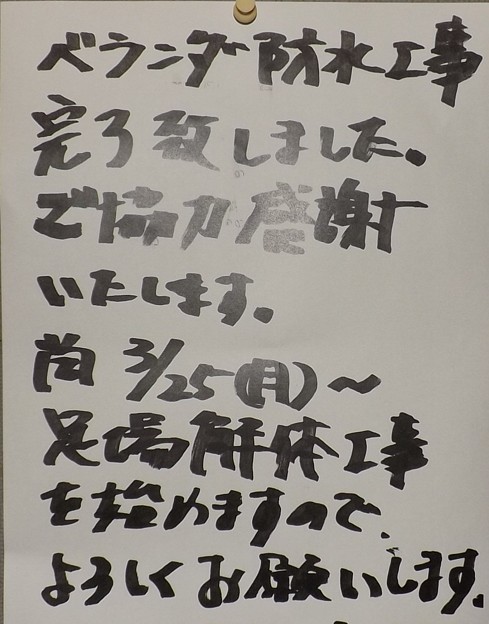 ベランダ防水工事
完了致しました。
ご協力感謝
いたします。
尚 3/25(月)～
足場解体工事
を始めますので、
よろしくお願いします。